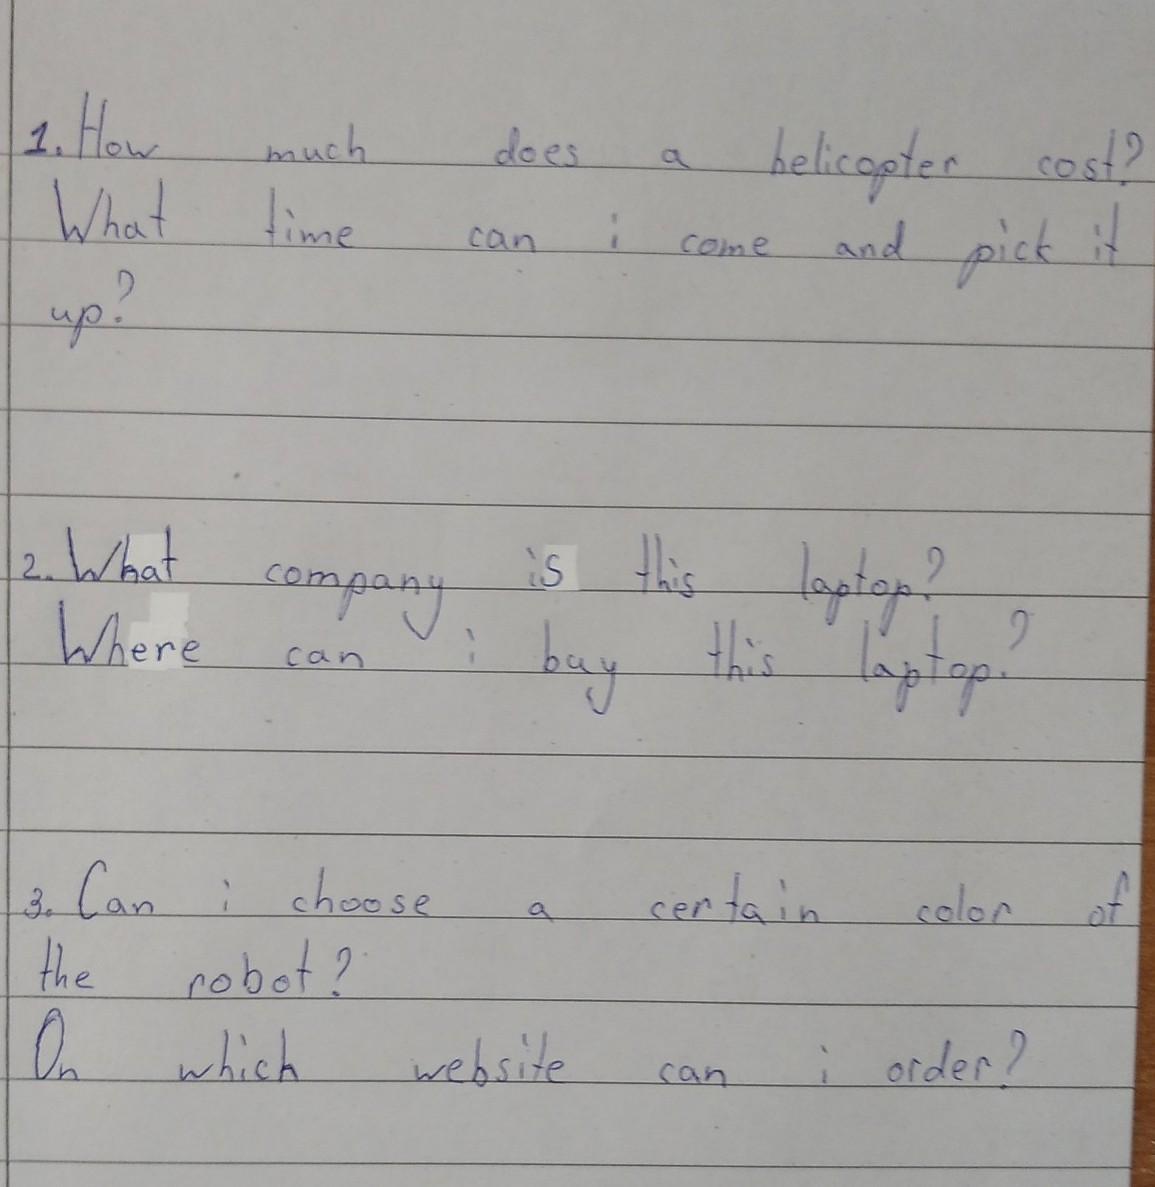 1. How much does a helicopter cost?
What time can i come and pick it
up?
2. What company is this laptop?
Where can i buy this laptop?
3. Can i choose a certain color of
the robot?
On which website can i order?